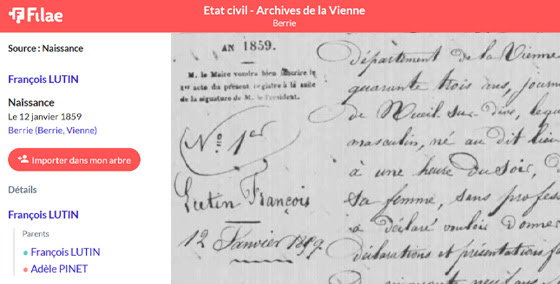 Filae
Etat civil - Archives de la Vienne
Berrie
Source : Naissance
François LUTIN
Naissance
Le 12 janvier 1859
Berrie (Berrie, Vienne)
Importer dans mon arbre
Détails
François LUTIN
Parents
François LUTIN
Adèle PINET
AN 1859.
M. le Maire voudra bien inscrire le
1er acte du présent registre à la suite
de la signature de M. le Président.
N.o 1er
Lutin François
12 Janvier 1859.
Département de la Vienne
quarante trois ans, journ
de Mueil sur dive, leque
masculin, né au dit lieu
à une heure du soir, D
sa femme, sans profes
a déclaré vouloir donner
déclarations et présentation f